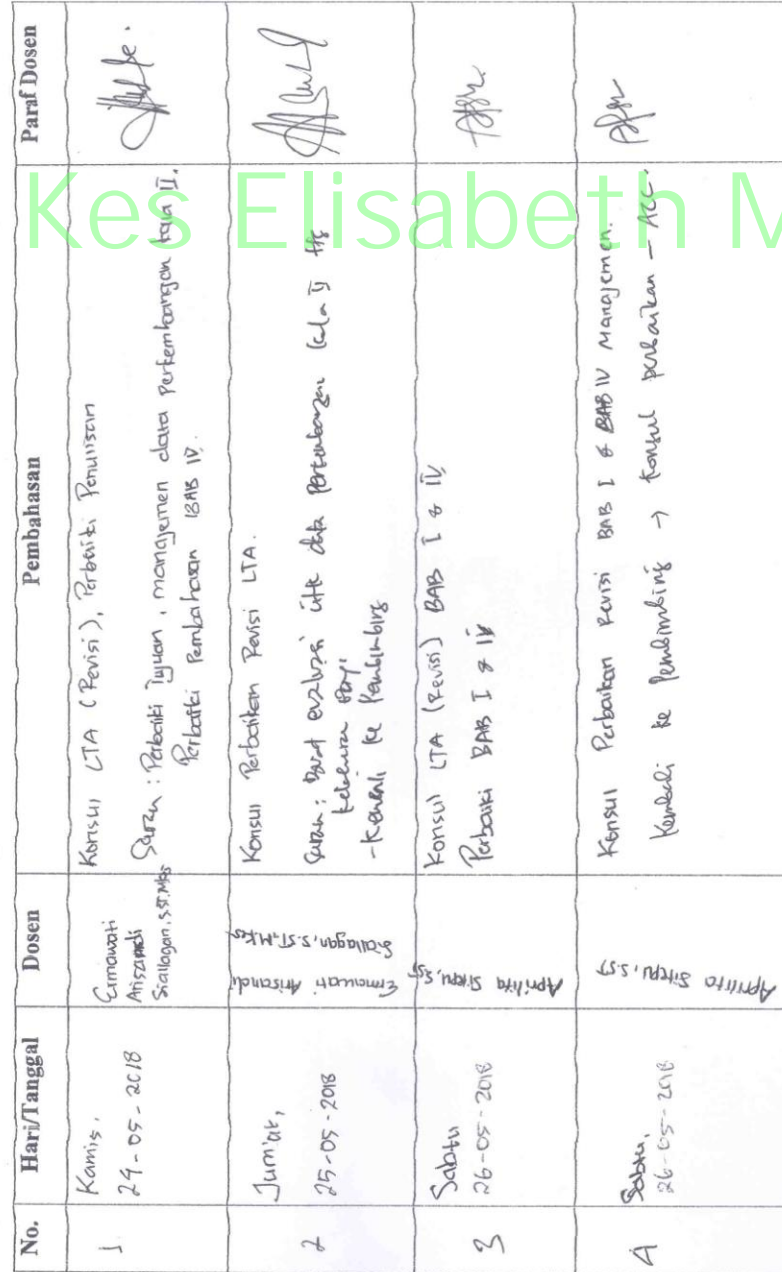 No. Hari/Tanggal Dosen Pembahasan Paraf Dosen
1
Kamis,
24-05-2018
Ermawati
Arisandi
Siallagan, S.ST, M.Kes
Konsul LTA (Revisi), Perbaiki Penulisan
Saran : Perbaiki Tujuan, manajemen data perkembangan kala II.
Perbaiki Pembahasan BAB IV.
2
Jum'at,
25-05-2018
Ermawati Arisandi
Siallagan, S.ST, M.Kes
Konsul Perbaikan Revisi LTA.
Saran : Buat evaluasi utk data Perkembangan kala II
- Kembali ke Pembimbing
3
Sabtu
26-05-2018
Aprilita Sitepu, S.ST
Konsul LTA (Revisi) BAB I & IV
Perbaiki BAB I & IV
4
Sabtu,
26-05-2018
Aprilita Sitepu, S.ST
Konsul Perbaikan Revisi BAB I & BAB IV Manajemen.
Kembali ke Pembimbing → Konsul perbaikan - ACC.
Kes Elisabeth M